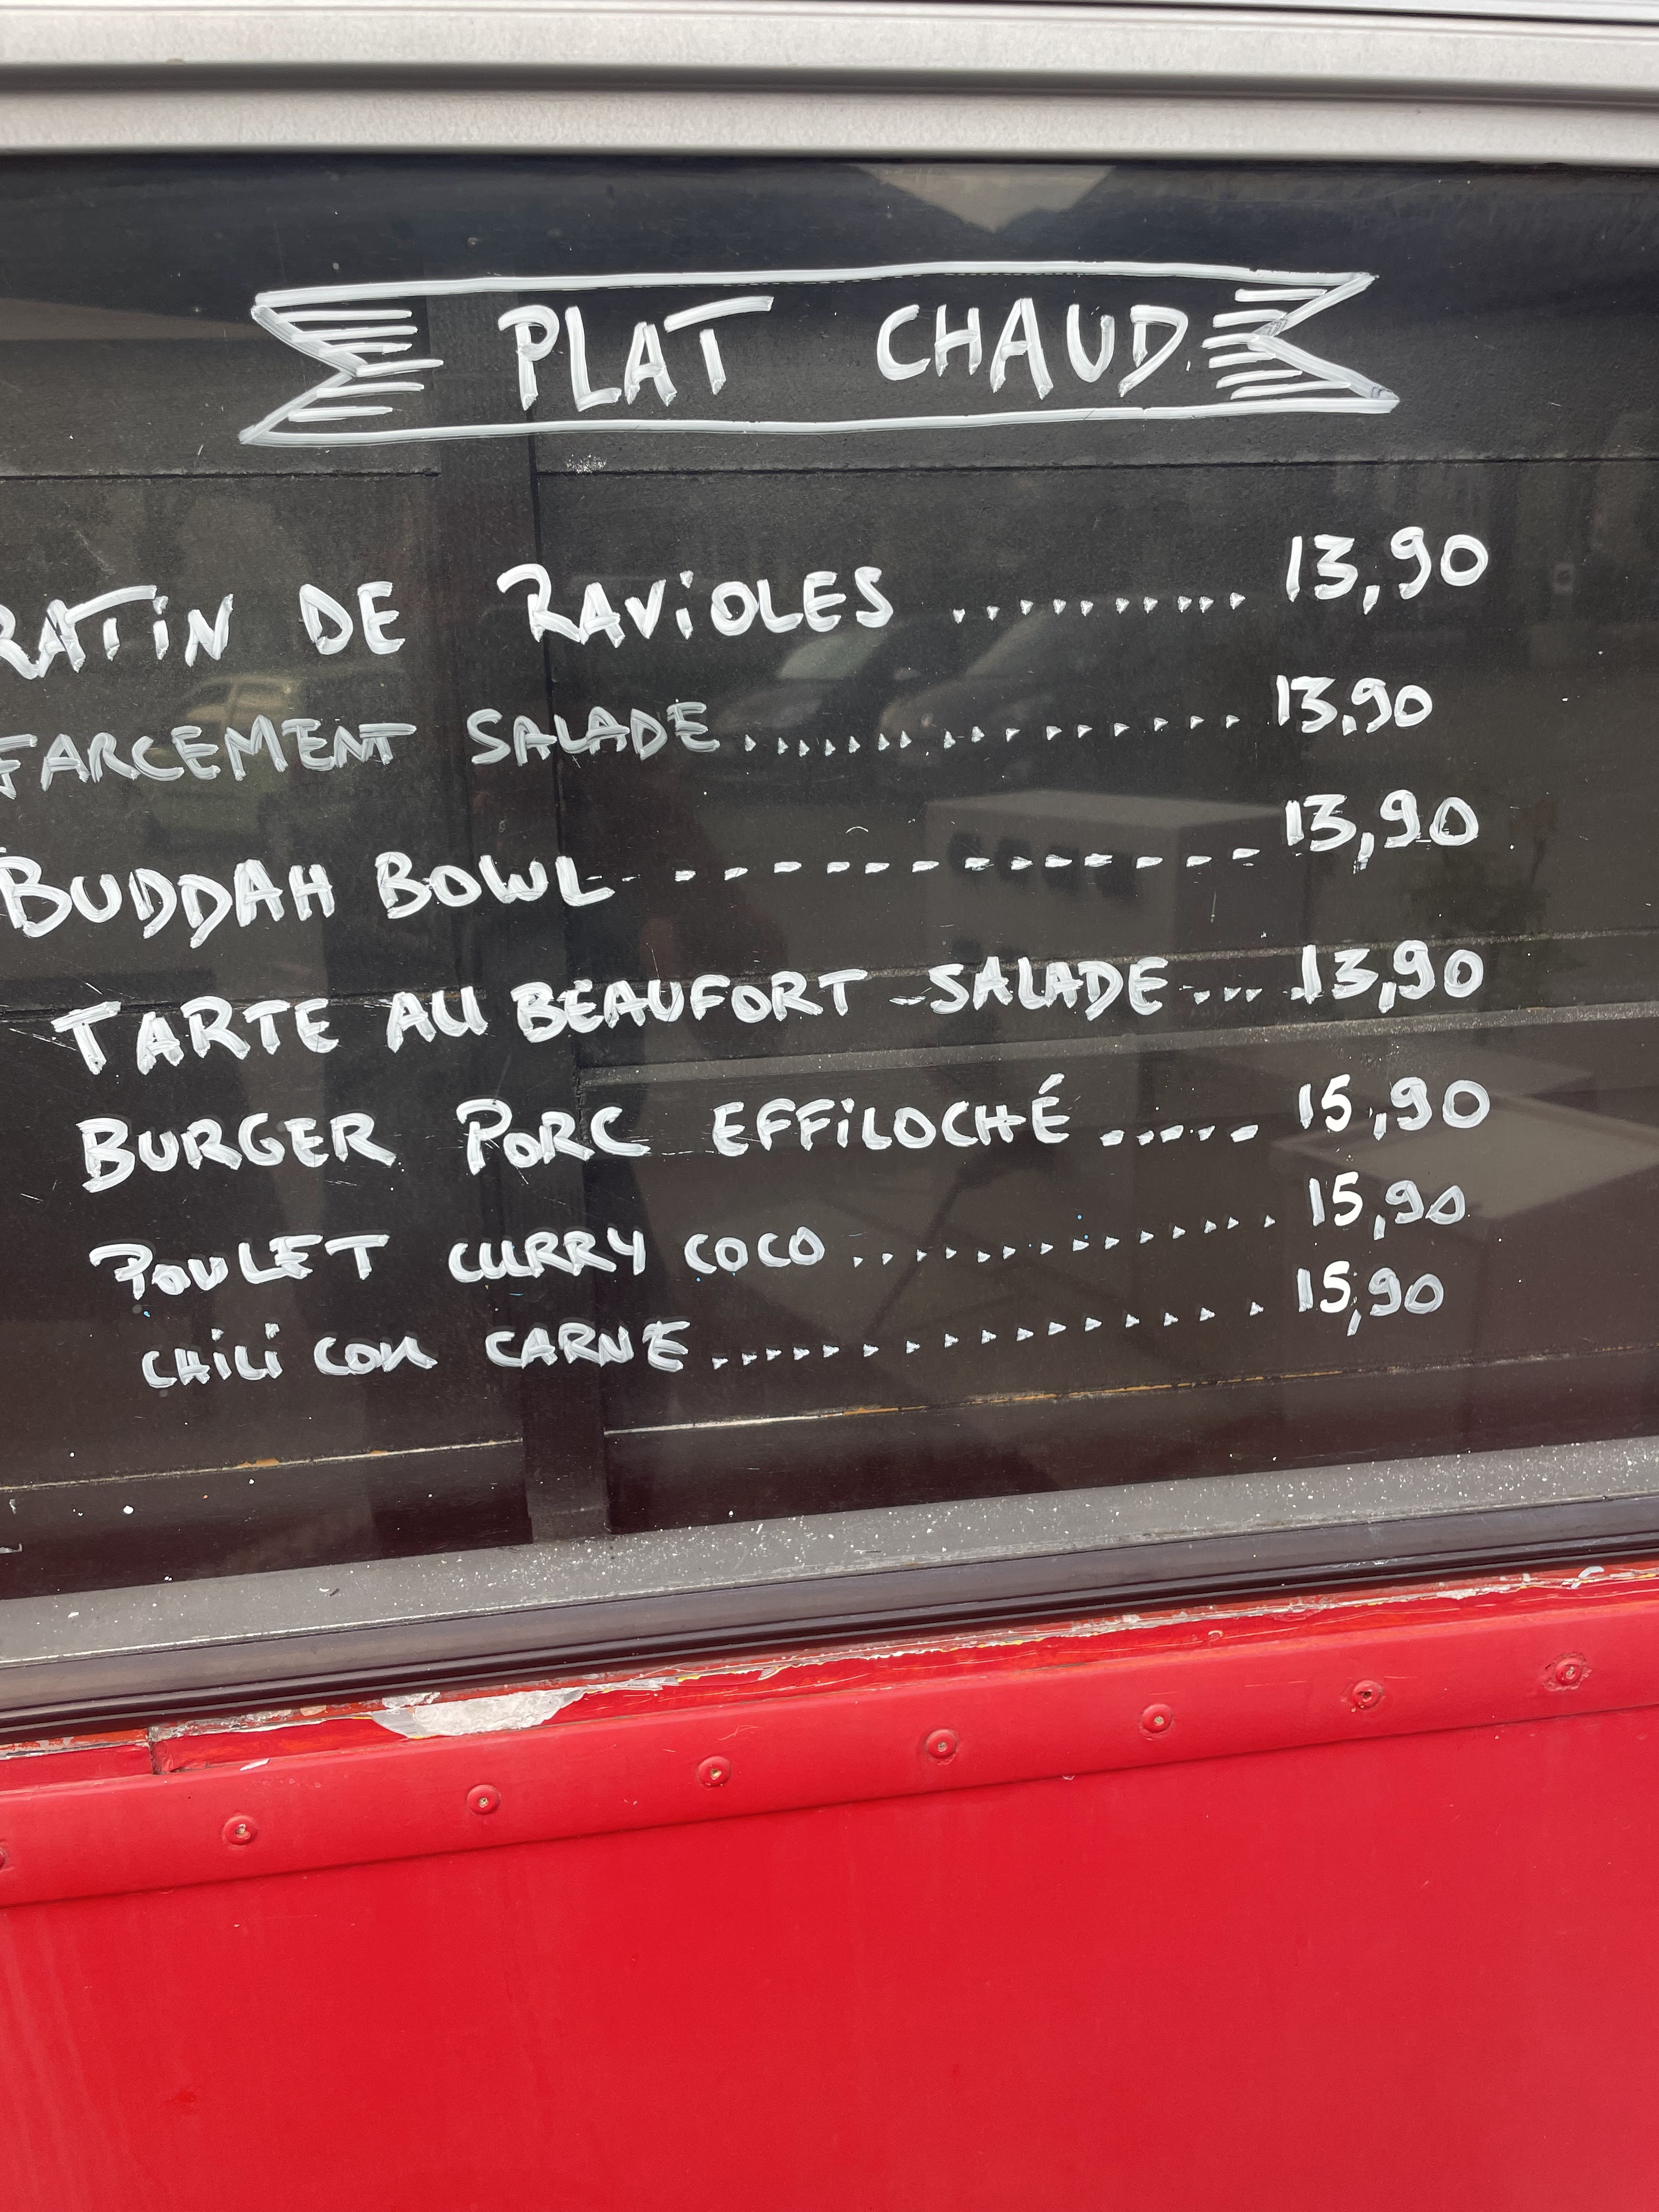 PLAT CHAUD
RATIN DE RAViOLES .......... 13,90
FARCEMENT SALADE ................ 13,90
BUDDAH BOWL - - - - - - - - - - - - - 13,90
TARTE AU BEAUFORT - SALADE .... 13,90
BURGER PORC EFFiLOCHÉ ..... 15,90
POULET CURRY COCO .............. 15,90
CHiLi CON CARNE ................ 15,90